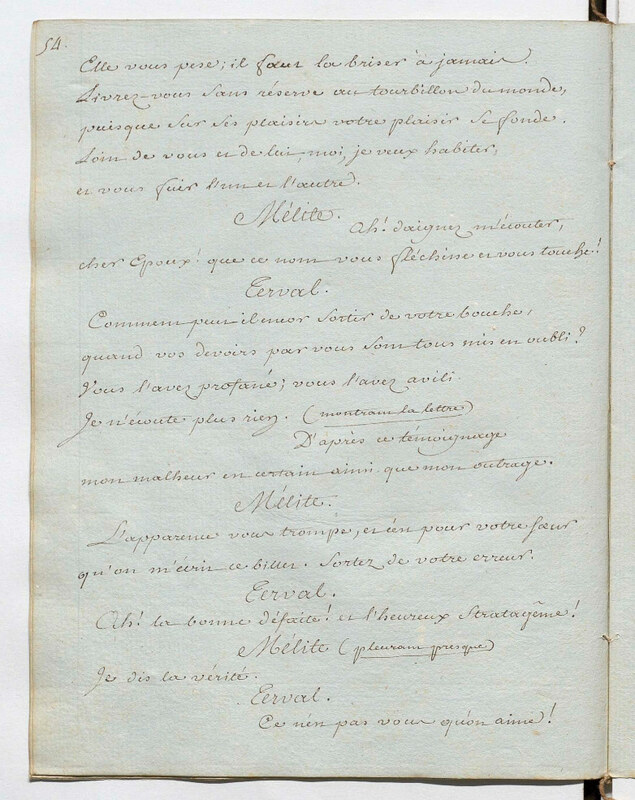 54.
Elle vous pese; il faut la briser à jamais.
Livrez-vous sans réserve au tourbillon du monde,
puisque sur ses plaisirs votre plaisir se fonde.
Loin de vous et de lui, moi, je veux habiter,
et vous fuir l'un et l'autre.
Mélite.
Ah! daignez m'écouter,
cher Epoux! que ce nom vous fléchisse et vous touche!
Terval.
Comment peut il encor sortir de votre bouche,
quand vos devoirs par vous sont tous mis en oubli?
Vous l'avez profané; vous l'avez avili.
Je n'écoute plus rien. (montrant la lettre)
D'après ce témoignage
mon malheur est certain ainsi que mon outrage.
Mélite.
L'apparence vous trompe, et c'est pour votre sœur
qu'on m'écrit ce billet. Sortez de votre erreur.
Terval.
Ah! la bonne défaite! et l'heureux stratagême!
Mélite (pleurant presque)
Je dis la vérité.
Terval.
Ce n'est pas vous qu'on aime!